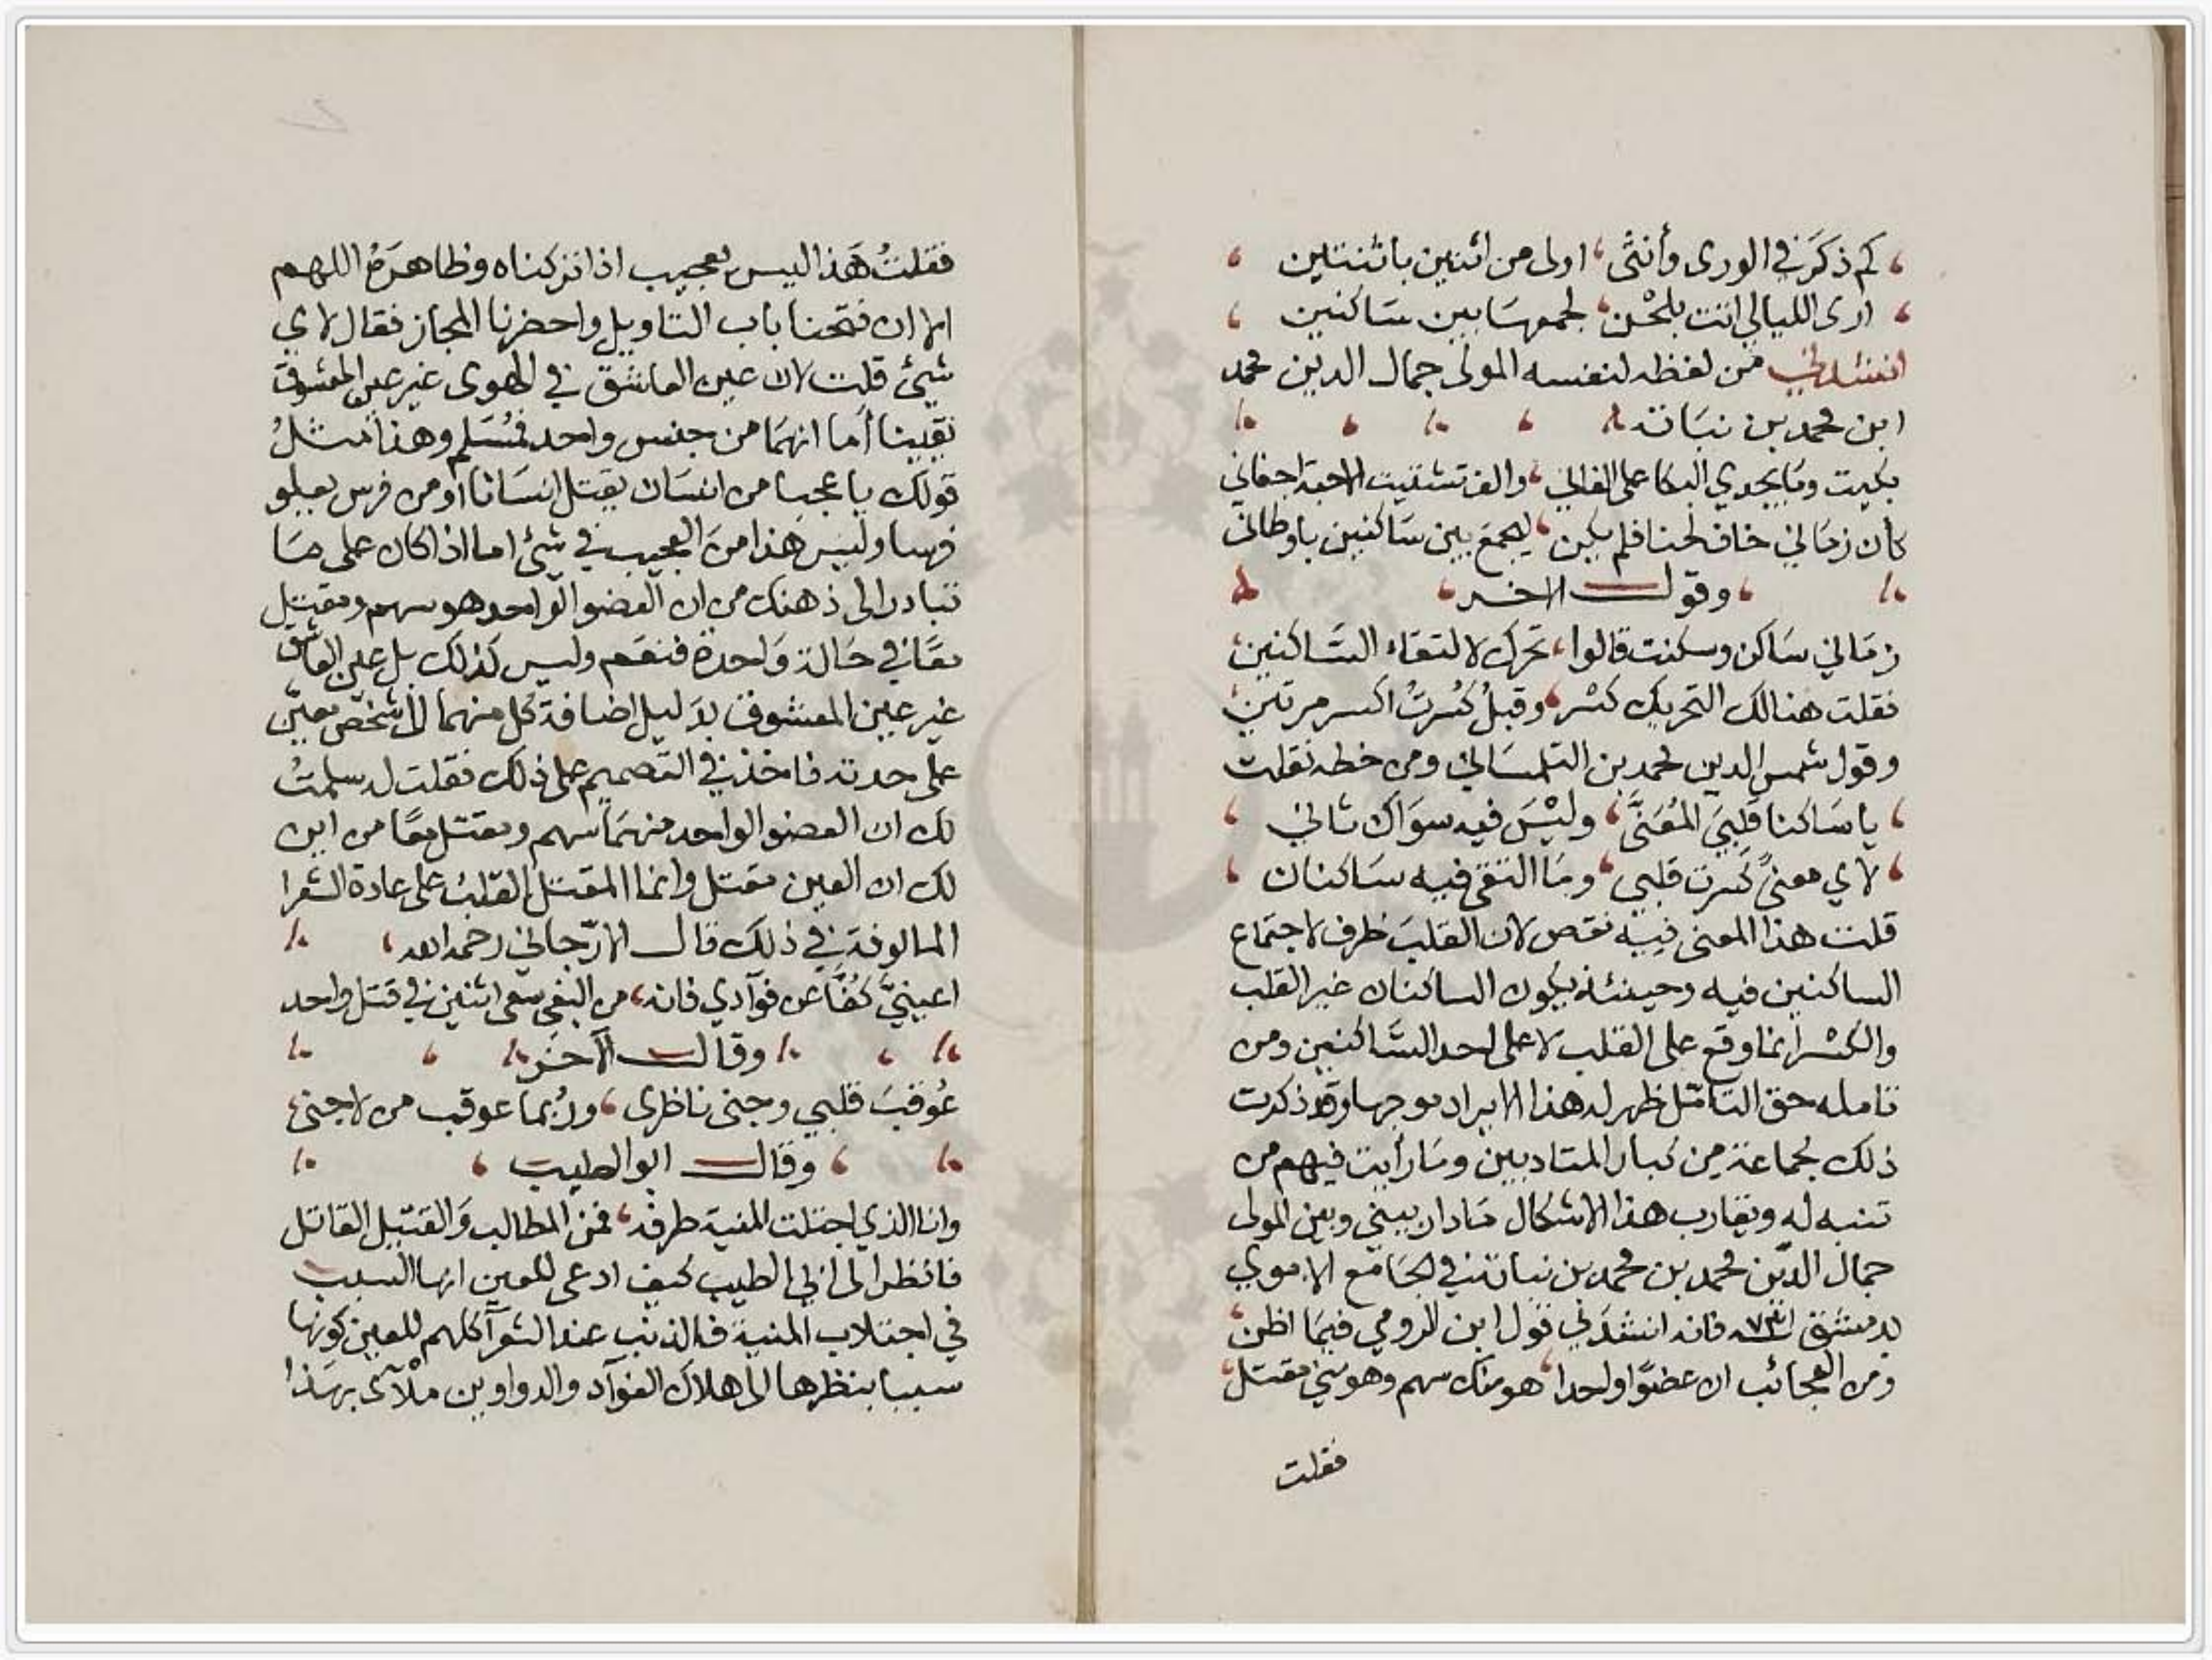 كم ذكر في الورى وأنثى ، اولى من اثنين باثنتين
ارى الليالي اتت بلحن ، لجمعها بين ساكنين
انشدني من لفظه لنفسه المولى جمال الدين محمد
ابن محمد بن نباتة
بكيت وما يجدي البكا على الفاني ، والف تشتيت الاحبة اجفاني
كأن زماني خاف لحنا فلم يكن ، ليجمع بين ساكنين باوطاني
وقول الاخر
زماني ساكن وسكنت قالوا ، تحرك لالتقاء الساكنين
فقلت هنالك التحريك كسر ، وقبل كسرت اكسر مرتين
وقول شمس الدين محمد بن التلمساني ومن خطه نقلت
يا ساكنا قلبي المعنى ، وليس فيه سواك ثاني
لاي معنى كسرت قلبي ، وما التقى فيه ساكنان
قلت هذا المعنى فيه نقص لان القلب ظرف لاجتماع
الساكنين فيه وحينئذ يكون الساكنان غير القلب
والكسر انما وقع على القلب لا على احد الساكنين ومن
تامله حق التامل ظهر له هذا الايراد موجها وقد ذكرت
ذلك لجماعة من كبار المتادبين وما رأيت فيهم من
تنبه له ويقارب هذا الاشكال ما دار بيني وبين المولى
جمال الدين محمد بن محمد بن نباتة في الجامع الاموي
بدمشق فانه انشدني قول ابن الرومي فيما اظن
ومن العجائب ان عضوا واحدا ، هو منك سهم وهو مني مقتل
فقلت
فقلت هذا ليس بعجيب اذا تركناه وظاهره اللهم
الا ان فتحنا باب التاويل واحضرنا المجاز فقال لاي
شيئ قلت لان عين العاشق في الهوى غير عين المعشوق
يقينا أما انهما من جنس واحد فمسلم وهذا مثل
قولك يا عجبا من انسان يقتل انسانا أو من فرس يعلو
فرسا وليس هذا من العجيب في شيئ اما اذا كان على ما
تبادر الى ذهنك من ان العضو الواحد هو سهم ومقتل
معا في حالة واحدة فنعم وليس كذلك بل عين العاشق
غير عين المعشوق بدليل اضافة كل منهما الى شخص معين
على حدته فاخذ في التصميم على ذلك فقلت له سلمت
لك ان العضو الواحد منهما سهم ومقتل معا من اين
لك ان العين مقتل وانما المقتل القلب على عادة الشعرا
المالوفة في ذلك قال الارجاني رحمه الله
اعينيّ كفا عن فوآدي فانه ، من البغي سعى اثنين في قتل واحد
وقال الآخر
عوقب قلبي وجنى ناظرى ، وربما عوقب من لا جنى
وقال ابو الطيب
وانا الذي اجتلب المنية طرفه ، فمن المطالب والقتيل القاتل
فانظر الى ابي الطيب كيف ادعى للعين انها السبب
في اجتلاب المنية فالذنب عند الشعرآ كلهم للعين كونها
سببا بنظرها الى اهلاك الفوآد والدواوين ملآى بهذا